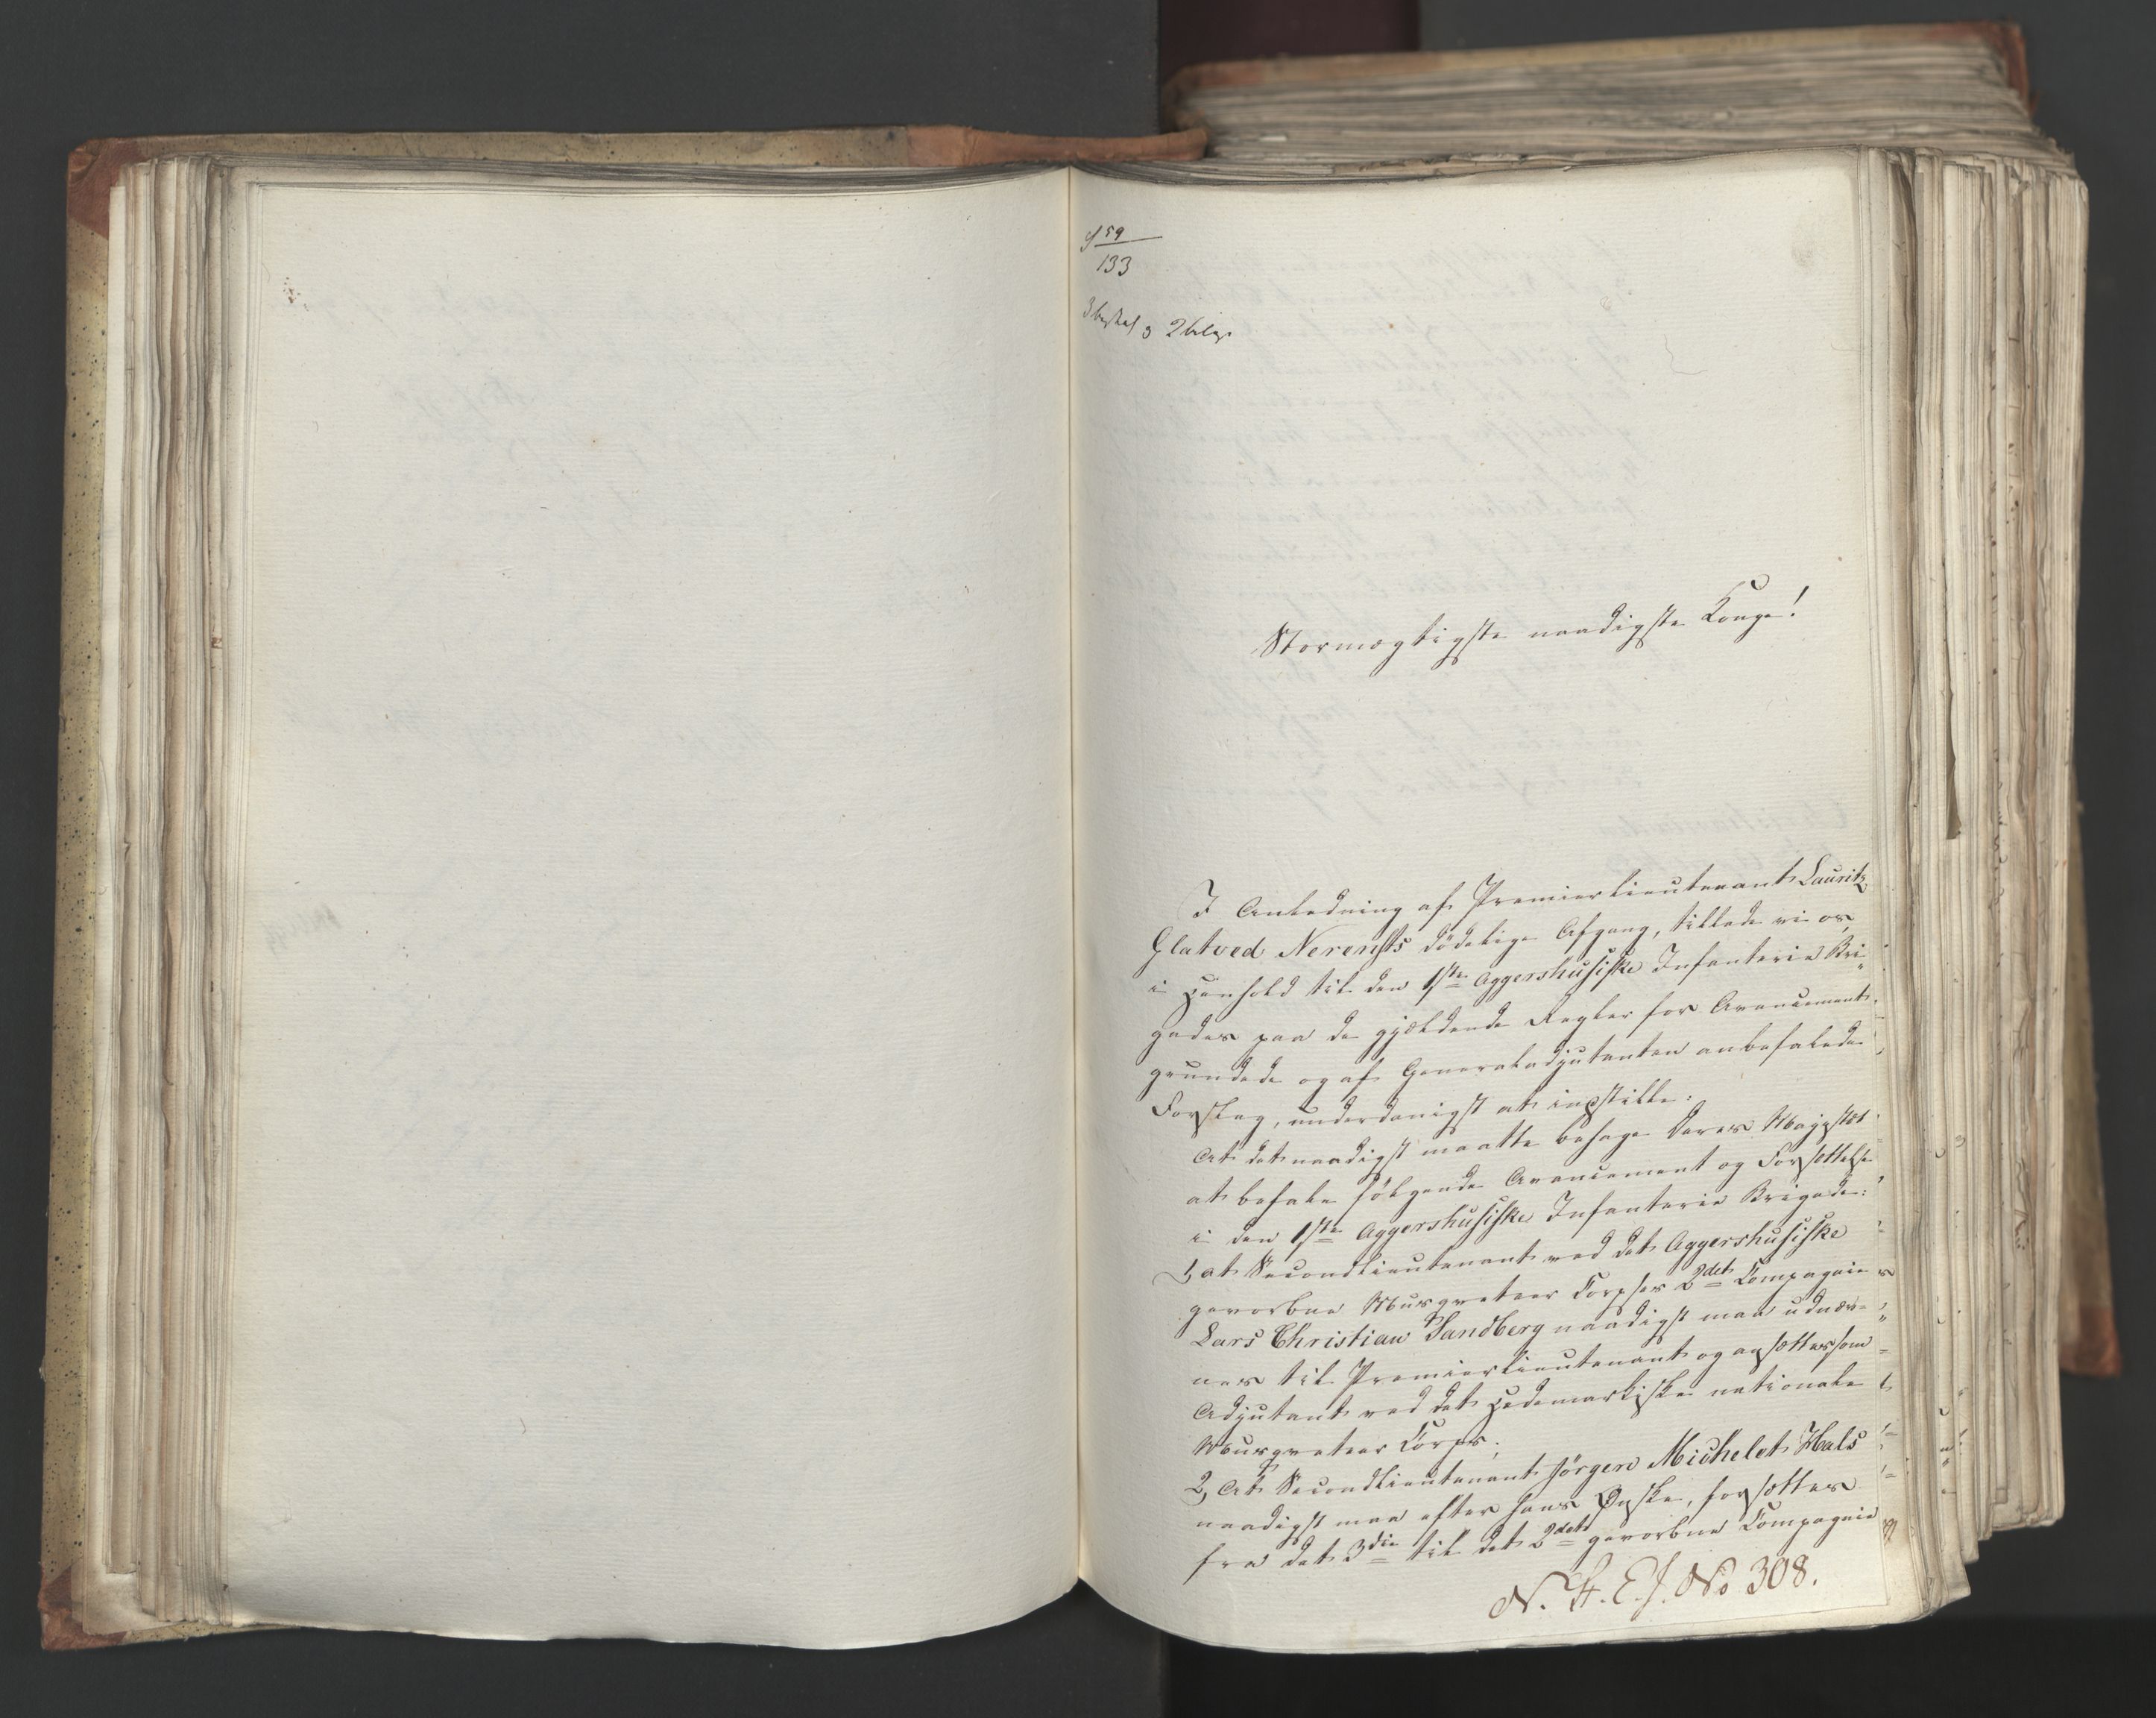 59
133
2 bilag
Stormægtigste naadigste Konge!
I Anledning af Premierlieutenant Lauritz
Glatved Nerensts dödelige Afgang, tillade vi os,
i Henhold til den 1ste Aggershusiske Infanterie Bri-
gades paa de gjældende Regler for Avancement
grundede og af Generaladjutanten anbefalede
Forslag, underdanigst at indstille:
At det naadigst maatte behage Deres Majestæt
at befale følgende Avancement og Forsættelse
i den 1ste Aggershusiske Infanterie Brigade:
1, at Secondlieutenant ved det Aggershusiske
gevorbne Musqueteer Corpses 2det Compagnie
Lars Christian Sandberg naadigst maa udnæv-
nes til Premierlieutenant og ansættes som
Adjutant ved det Hedemarkske nationale
Musqueteer Corps;
2, At Secondlieutenant Jörgen Michelet Hals
naadigst maa efter hans Ønske, forsættes
fra det 3die til det 2det gevorbne Compagnie
N. F. E. J. No 308.